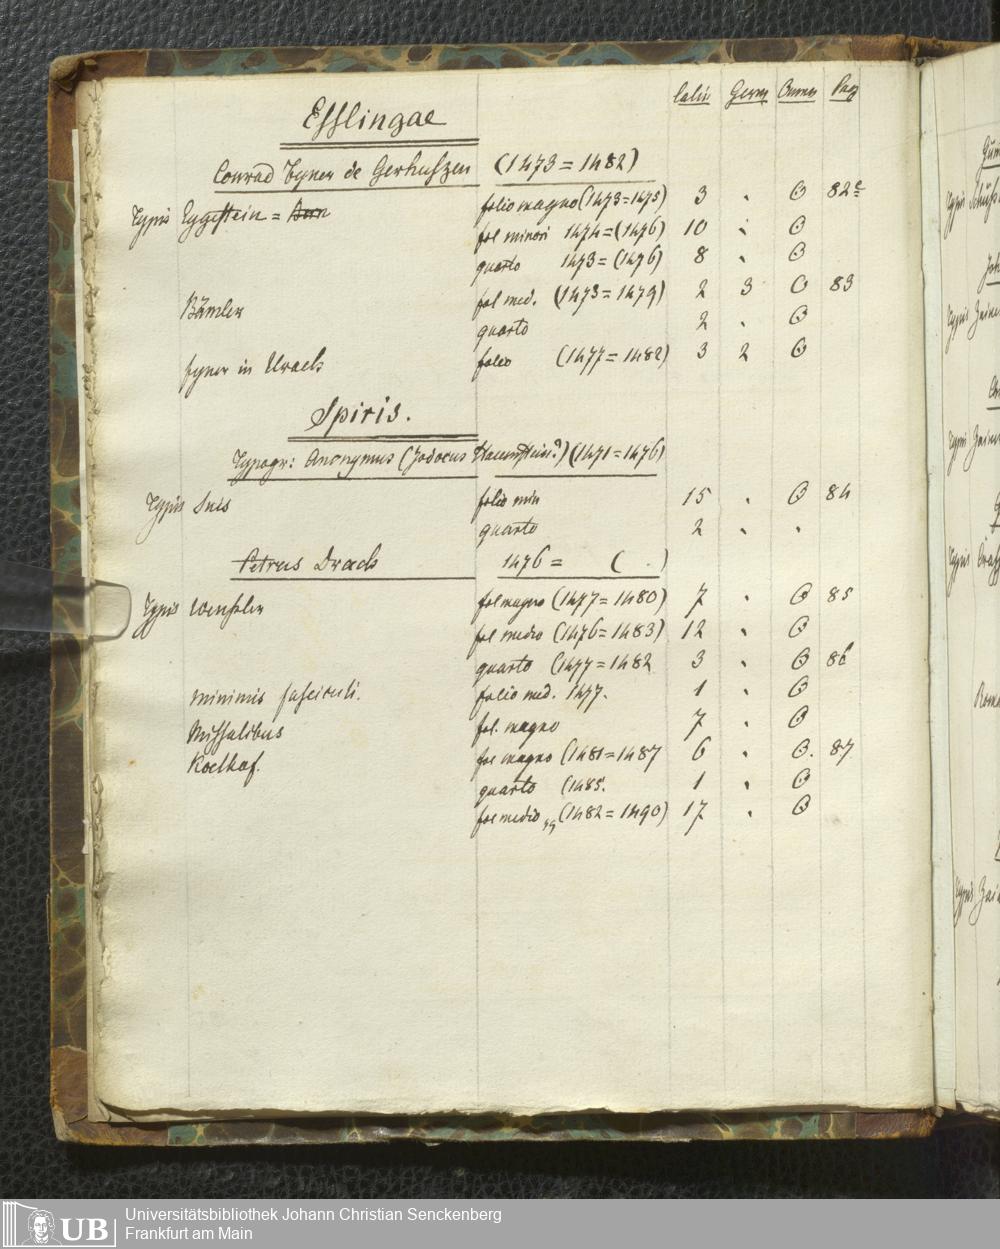 Latin Germ Omnes Pag
Esslingae
Conrad Fyner de Gerhuszen (1473 = 1482)
Typis Eggestein = folio magno (1473=1475) 3 . O 82
fol minori 1474=(1476) 10 . O
quarto 1473=(1476) 8 . O
Bämler fol med. (1473=1479) 2 3 O 83
quarto 2 . O
fyner in Urach folio (1477=1482) 3 2 O
Spiris.
Typogr: Anonymus (Jodocus ?) (1471=1476)
Typis Suis folio min 15 . O 84
quarto 2 . .
Petrus Drach 1476 = ( . )
Typis Wenssler fol magno (1477=1480) 7 . O 85
fol medio (1476=1483) 12 . O
quarto (1477=1482 3 . O 86
minimis fasciculi. folio med. 1477. 1 . O
Missalibus fol. magno 7 . O
Koelhof. fol magno (1481=1487 6 . O. 87
quarto (1485. 1 . O
fol medio (1482=1490) 17 . O
Typis
Typis
Typis
Typis
Typis
UB Universitätsbibliothek Johann Christian Senckenberg
Frankfurt am Main